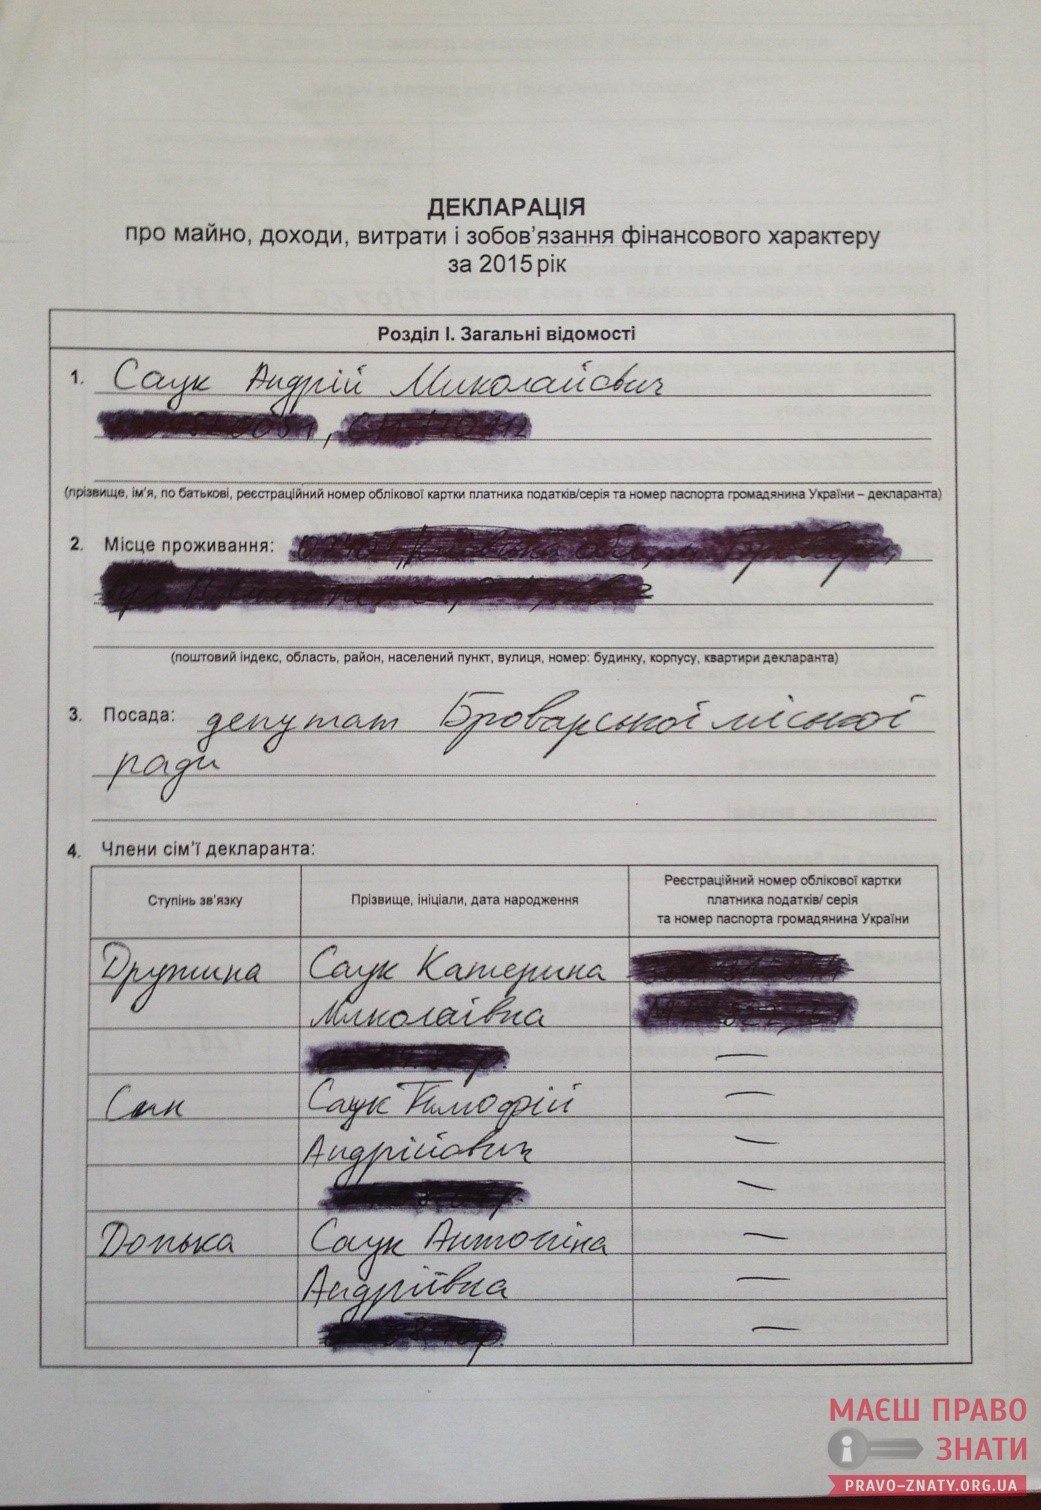 ДЕКЛАРАЦІЯ
про майно, доходи, витрати і зобов'язання фінансового характеру
за 2015 рік
Розділ I. Загальні відомості
1. Саук Андрій Миколайович
(прізвище, ім'я, по батькові, реєстраційний номер облікової картки платника податків/серія та номер паспорта громадянина України – декларанта)
2. Місце проживання:
(поштовий індекс, область, район, населений пункт, вулиця, номер: будинку, корпусу, квартири декларанта)
3. Посада: депутат Броварської міської
ради
4. Члени сім'ї декларанта:
Ступінь зв'язку
Прізвище, ініціали, дата народження
Реєстраційний номер облікової картки
платника податків/ серія
та номер паспорта громадянина України
Дружина Саук Катерина
Миколаївна
—
Син Саук Тимофій —
Андрійович —
—
Донька Саук Антоніна —
Андріївна —
—
МАЄШ ПРАВО
ЗНАТИ
PRAVO-ZNATY.ORG.UA